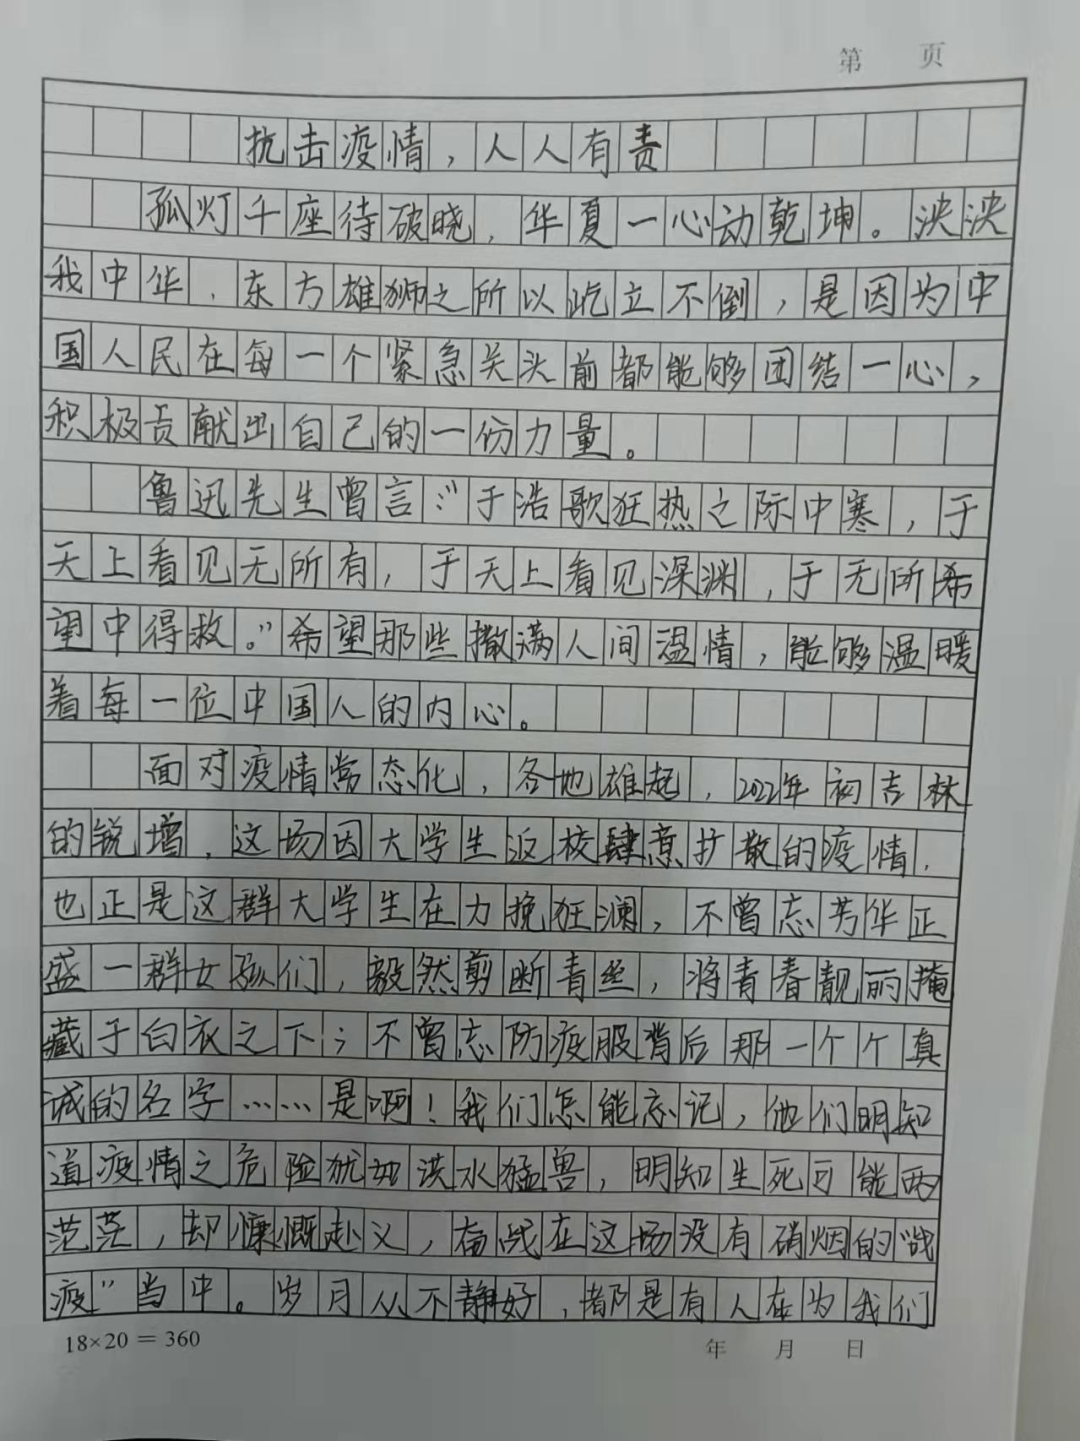 第 页
抗击疫情，人人有责
孤灯千座待破晓，华夏一心动乾坤。泱泱
我中华，东方雄狮之所以屹立不倒，是因为中
国人民在每一个紧急关头前都能够团结一心，
积极贡献出自己的一份力量。
鲁迅先生曾言：“于浩歌狂热之际中寒，于
天上看见无所有，于天上看见深渊，于无所希
望中得救。”希望那些撒满人间温情，能够温暖
着每一位中国人的内心。
面对疫情常态化，各地雄起，2022年初吉林
的锐增，这场因大学生返校肆意扩散的疫情，
也正是这群大学生在力挽狂澜，不曾忘芳华正
盛一群女孩们，毅然剪断青丝，将青春靓丽掩
藏于白衣之下；不曾忘防疫服背后那一个个真
诚的名字……是啊！我们怎能忘记，他们明知
道疫情之危险犹如洪水猛兽，明知生死可能两
茫茫，却慷慨赴义，奋战在这场没有硝烟的“战
疫”当中。岁月从不静好，都是有人在为我们
18×20＝360 年 月 日